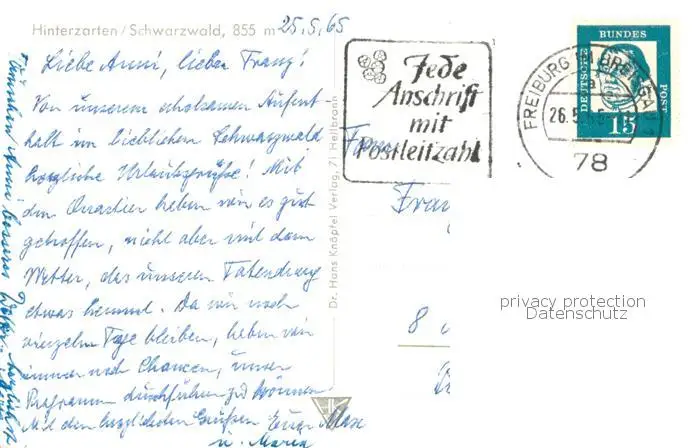 Hinterzarten/Schwarzwald, 855 m
25.5.65
Liebe Anni, lieber Franz!
Von unserem erholsamen Aufent
halt im lieblichen Schwarzwald
herzliche Urlaubsgrüße! Mit
dem Quartier haben wir es gut
getroffen, nicht aber mit dem
Wetter, das unseren Tatendrang
etwas hemmt. Da wir noch
vierzehn Tage bleiben, haben wir
immer noch Chancen, unser
Programm durchführen zu können
Mit den herzlichsten Grüßen Euer Max
u. Maria
Dr. Hans Knöpfel Verlag, 71 Heilbronn
Jede
Anschrift
mit
Postleitzahl
FREIBURG IM BREISGAU 1
a
26.5.
78
DEUTSCHE
BUNDES
POST
15
Fam
Frau
8
privacy protection
Datenschutz